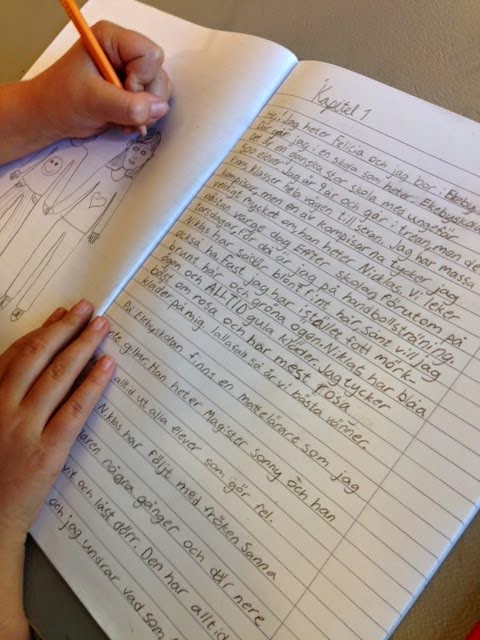 Kapitel 1
Hej! Jag heter Felicia och jag bor i Ekeby
Där går jag i en skola som heter Ekebyskolan
Det är en ganska stor skola med ungefär
500 elever. Jag är 9 år och går i trean, men de
finns klasser hela vägen till sexan. Jag har massa
kompisar, men en av kompisarna tycker jag
väldigt mycket om, han heter Niklas. Vi leker
nästan varge dag efter skolan, förutom på
torsdagar för då är jag på handbollsträning.
Niklas har såååå blont fint hår. Sånt vill jag
också ha. Fast jag har istället fått mörk-
brunt hår och gröna ögon. Niklas har blåa
ögon och ALLTID gula kläder. Jag tycker
bäst om rosa och har mest rosa
kläder på mig. Iallafall så är vi bästa vänner.
På Ekebyskolan finns en mattelärare som jag
inte gillar. Han heter Magister Sonny och han
alltid ut alla elever som gör fel.
Niklas har följt med fröken Sanna
några gånger och där nere
vit och låst dörr. Den har alltid
och jag undrar vad som